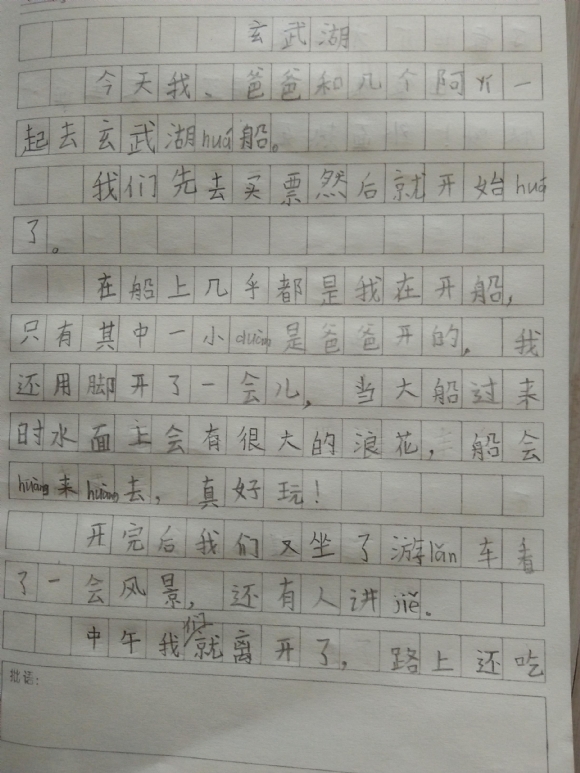 玄武湖
今天我、爸爸和几个阿yí一
起去玄武湖huá船。
我们先去买票然后就开始huá
了。
在船上几乎都是我在开船,
只有其中一小duàn是爸爸开的,我
还用脚开了一会儿,当大船过来
时水面上会有很大的浪花,船会
huàng来huàng去,真好玩!
开完后我们又坐了游lǎn车看
了一会风景,还有人讲jiě.
中午我们就离开了,路上还吃
批语: